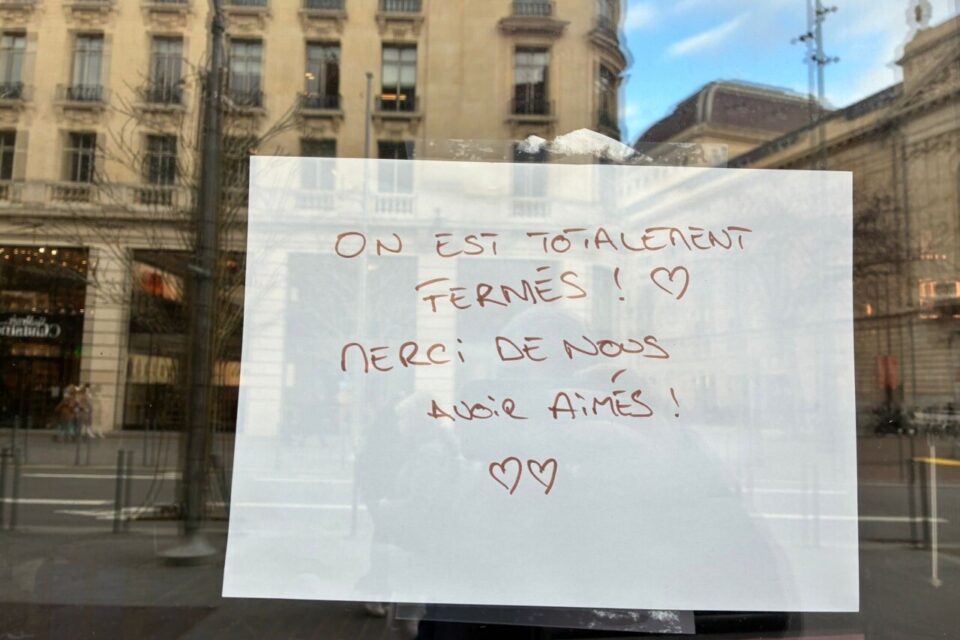 ON EST TOTALEMENT
FERMÉS ! ♡
MERCI DE NOUS
AVOIR AIMÉS !
♡♡